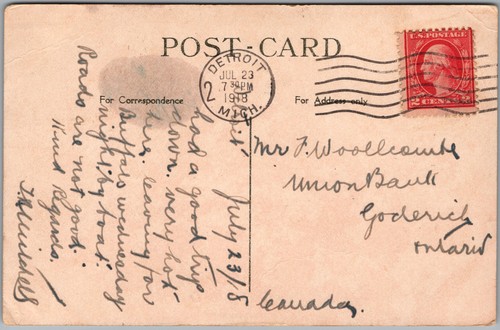 POST-CARD
For Correspondence
For Address only
DETROIT
JUL 23
7 30 PM
1918
MICH.
2
U.S. POSTAGE
2 CENTS 2
July 23/18
had a good trip
down. very hot
here. leaving for
Buffalo wednesday
night by boat.
Roads are not good.
Kind Regards.
Mr F. Woollcombe
Union Bank
Goderich
Ontario
Canada.